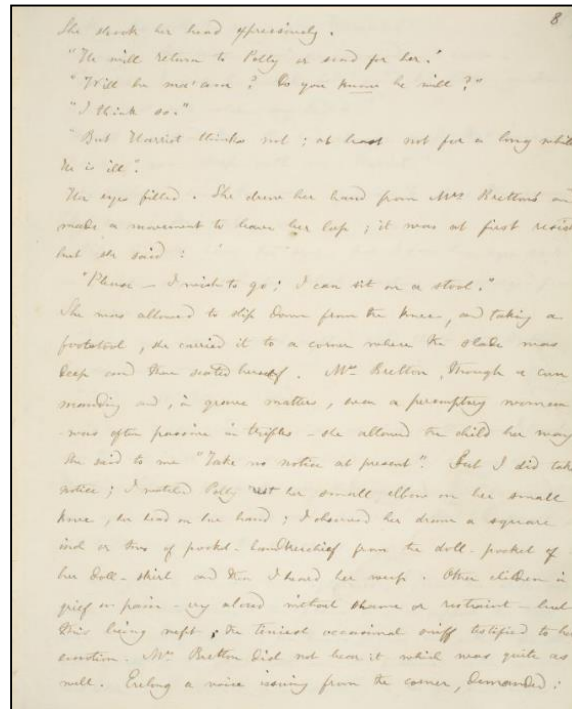 8
She shook her head expressively.
"He will return to Polly or send for her."
"Will he ma'am? Do you know he will?"
"I think so."
"But Harriet thinks not; at least not for a long while
He is ill".
Her eyes filled. She drew her hand from Mrs Bretton's and
made a movement to leave her lap; it was at first resis
but she said:
"Please – I wish to go; I can sit on a stool."
She was allowed to slip down from the knee, and taking a
footstool, she carried it to a corner where the shade was
deep and there seated herself. Mrs. Bretton, though a com
manding and, in grave matters, even a peremptory woman
was often passive in trifles – she allowed the child her way
She said to me "Take no notice at present". But I did take
notice; I watched Polly rest her small elbow on her small
knee, her head on her hand; I observed her draw a square
inch or two of pocket-handkerchief from the doll-pocket of
her doll-skirt and then I heard her weep. Other children in
grief or pain – cry aloud without shame or restraint – but
this being wept; the tiniest occasional sniff testified to her
emotion. Mrs Bretton did not hear it which was quite as
well. Ereling a voice issuing from the corner, demanded: